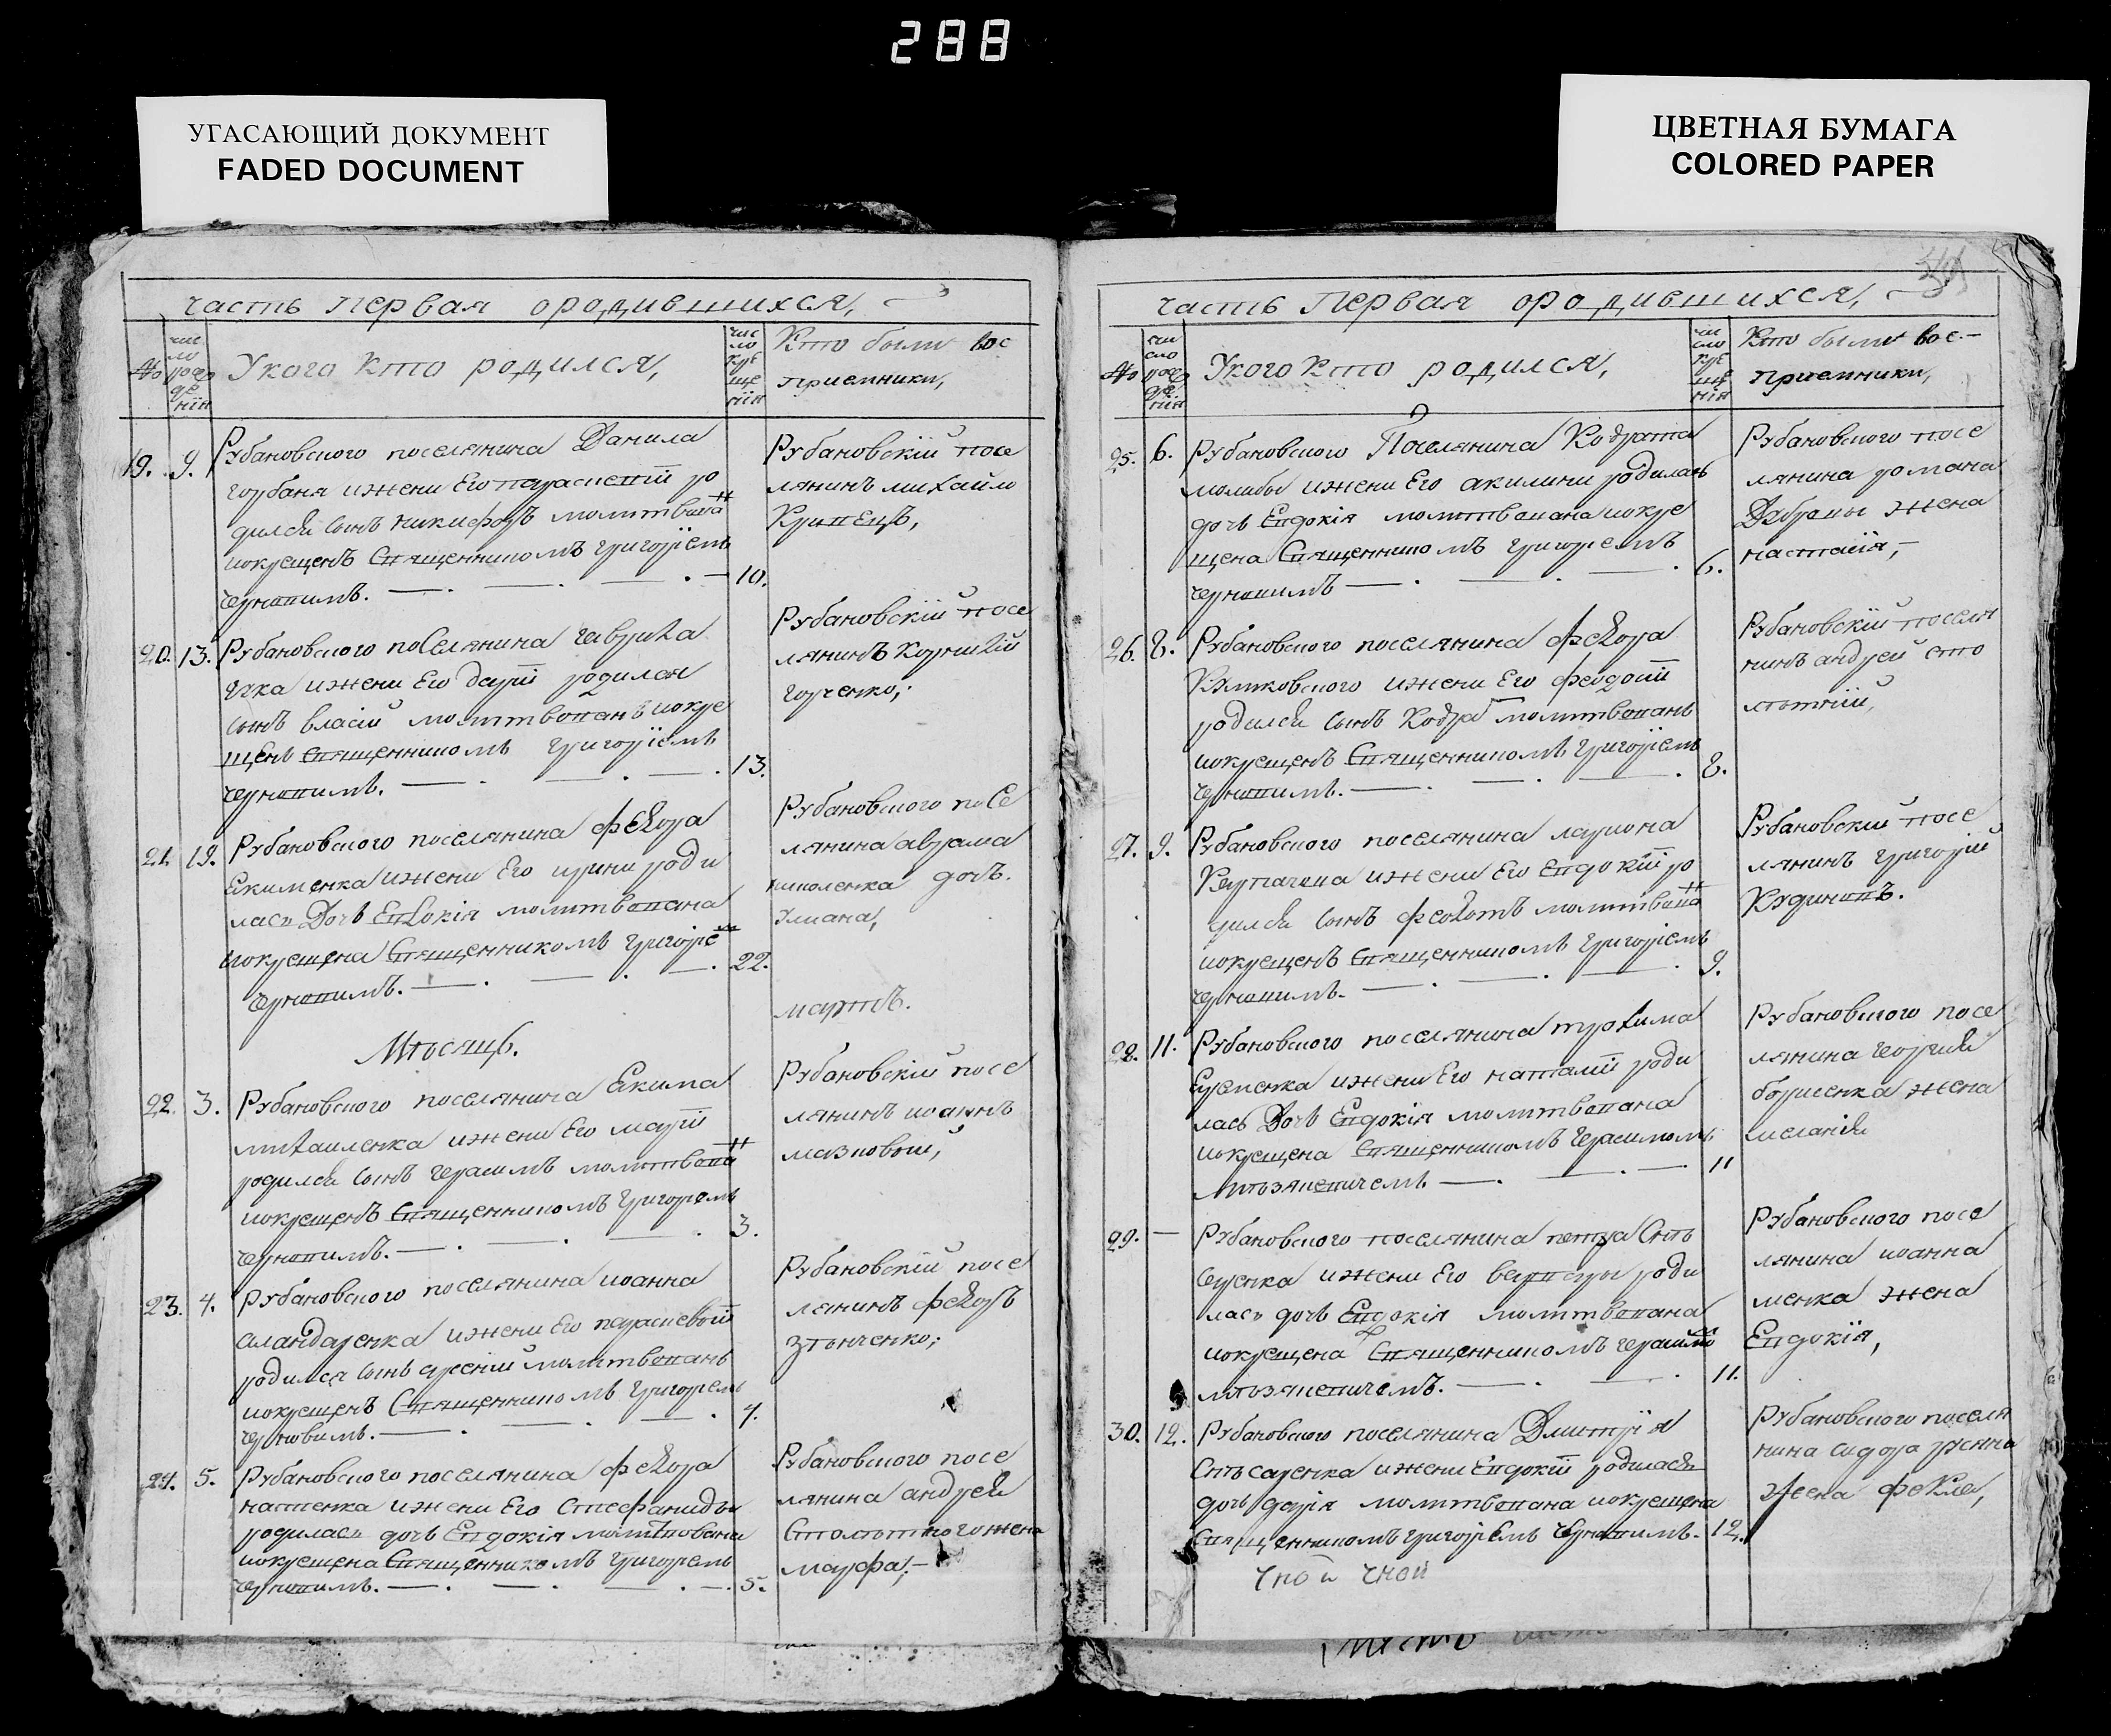 288
УГАСАЮЩИЙ ДОКУМЕНТ
FADED DOCUMENT
ЦВЕТНАЯ БУМАГА
COLORED PAPER
часть первая ородившихся,
№
число рождения
Укого кто родился,
число крещенія
Кто были вос
приемники,
19. 9. Рубановского поселянина Данила
горбаня ижени Его параскевіи ро
дился сынъ никифоръ молитвова
икрещенъ Священникомъ григоріемъ
черновимъ. 10.
Рубановскій посе
лянинъ михайло
Кривецъ,
20. 13. Рубановского поселянина гаврила
ижени Его даріи родился
сынъ власій молитвованъ икре
щенъ Священникомъ григоріемъ
черновимъ. 13.
Рубановскій посе
лянинъ корнилій
горченко,
21. 19. Рубановского поселянина феодора
Екименка ижени Его ирини роди
лась Дочь Евдокія молитвована
икрещена Священникомъ григоріе
черновимъ. 22.
Рубановского посе
лянина аврама
николенка дочь
улиана,
Мѣсяцъ. мартъ.
22. 3. Рубановского поселянина Екима
михаиленка ижени Его маріи
родился сынъ герасимъ молитвова
икрещенъ Священникомъ григоріемъ
черновимъ. 3.
Рубановскій посе
лянинъ иоаннъ
мазновой,
23. 4. Рубановского поселянина иоанна
саландаренка ижени Его параскевіи
родился сынъ арсеній молитвованъ
икрещенъ Священникомъ григоріемъ
черновимъ. 4.
Рубановскій посе
лянинъ феодоръ
зѣнченко,
24. 5. Рубановского поселянина феодора
ижени Его Стефаниды
родилась дочь Евдокія молитвована
икрещена Священникомъ григоріемъ
черновимъ. 5.
Рубановского посе
лянина андрея
Столѣтнего жена
марфа,
часть первая ородившихся,
№
число рождения
Укого кто родился,
число крещенія
Кто были вос-
приемники,
25. 6. Рубановского Поселянина Кодрата
молибы ижени Его акилини родилась
дочь Евдокія молитвована икре
щена Священникомъ григоріемъ
черновимъ 6.
Рубановского посе
лянина романа
жена
настасія,
26. 8. Рубановского поселянина феодора
ижени Его феодосіи
родился сынъ Кодратъ молитвованъ
икрещенъ Священникомъ григоріемъ
черновимъ. 8.
Рубановскій поселя
нинъ андрей сто
лѣтній,
27. 9. Рубановского поселянина лариона
ижени Его Евдокіи ро
дился сынъ феодотъ молитвова
икрещенъ Священникомъ григоріемъ
черновимъ. 9.
Рубановскій посе
лянинъ григорій
Кудиновъ.
28. 11. Рубановского поселянина трохима
Еременка ижени Его наталіи роди
лась Дочь Евдокія молитвована
икрещена Священникомъ герасимомъ
11
Рубановского посе
лянина георгія
жена
меланія
29. — Рубановского поселянина петра Слѣ
саренка ижени Его варвары роди
лась дочь Евдокія молитвована
икрещена Священникомъ герасимо
11.
Рубановского посе
лянина иоанна
жена
Евдокія,
30. 12. Рубановского поселянина Димитрія
Слѣсаренка ижени Евдокіи родилася
дочь дарія молитвована икрещена
Священникомъ григоріемъ черновимъ. 12.
Рубановского поселя
нина сидора
жена фекла,